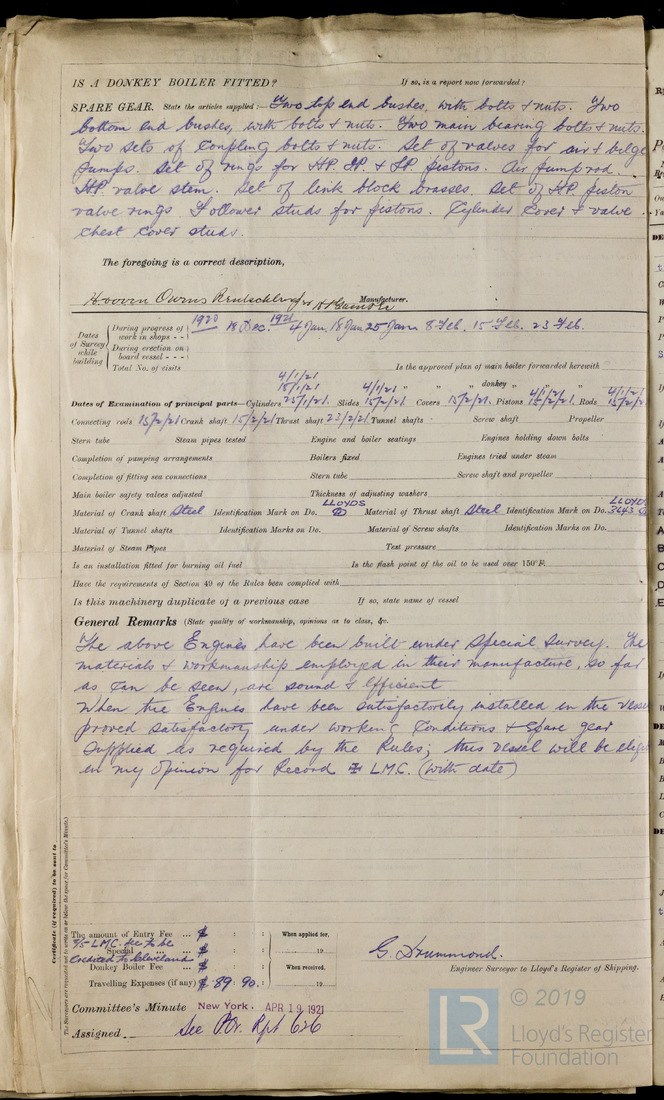 IS A DONKEY BOILER FITTED? If so, is a report now forwarded?
SPARE GEAR. State the articles supplied:— Two top end bushes, with bolts & nuts. Two
bottom end bushes, with bolts & nuts. Two main bearing bolts & nuts.
Two sets of Coupling bolts & nuts. Set of valves for air & bilge
pumps. Set of rings for HP. IP. & LP. pistons. Air pump rod.
HP. valve stem. Set of link block brasses. Set of HP. piston
valve rings. Follower studs for pistons. Cylinder Cover & valve
chest cover studs.
The foregoing is a correct description,
Hooven Owens Rentschler Manufacturer.
Dates of Survey while building
During progress of work in shops - - 1920 18 Dec. 1921 4 Jan. 18 Jan 25 Jan 8 Feb. 15 Feb. 23 Feb.
During erection on board vessel - - -
Total No. of visits Is the approved plan of main boiler forwarded herewith
4/1/21
18/1/21 4/1/21 " " donkey " 4/1/21 " 4/1/21
Dates of Examination of principal parts—Cylinders 25/1/21. Slides 15/2/21 Covers 15/2/21. Pistons 15/2/21. Rods 15/2/21
Connecting rods 15/2/21 Crank shaft 15/2/21 Thrust shaft 23/2/21 Tunnel shafts Screw shaft Propeller
Stern tube Steam pipes tested Engine and boiler seatings Engines holding down bolts
Completion of pumping arrangements Boilers fixed Engines tried under steam
Completion of fitting sea connections Stern tube Screw shaft and propeller
Main boiler safety valves adjusted Thickness of adjusting washers
Material of Crank shaft Steel Identification Mark on Do. LLOYDS Material of Thrust shaft Steel Identification Mark on Do. LLOYDS 3643
Material of Tunnel shafts Identification Marks on Do. Material of Screw shafts Identification Marks on Do.
Material of Steam Pipes Test pressure
Is an installation fitted for burning oil fuel Is the flash point of the oil to be used over 150°F.
Have the requirements of Section 49 of the Rules been complied with
Is this machinery duplicate of a previous case If so, state name of vessel
General Remarks (State quality of workmanship, opinions as to class, &c.
The above Engines have been built under Special Survey. The
materials & workmanship employed in their manufacture, so far
as can be seen, are sound & efficient
When the Engines have been satisfactorily installed in the vesse
proved satisfactory under working Conditions & Spare gear
supplied as required by the Rules; this vessel will be eligi
in my Opinion for Record LMC. (with date)
Certificate (if required) to be sent to
The Surveyors are requested not to write on or below the space for Committee's Minute.
The amount of Entry Fee ... : : When applied for,
3/5 LMC. fee to be
Special ... : : 19
Credited to Cleveland
Donkey Boiler Fee ... : : When received,
Travelling Expenses (if any) 89 : 90. : 19
G. Drummond.
Engineer Surveyor to Lloyd's Register of Shipping.
Committee's Minute New York. APR 19 1921
Assigned See Rpt 626
LR © 2019
Lloyd's Register
Foundation